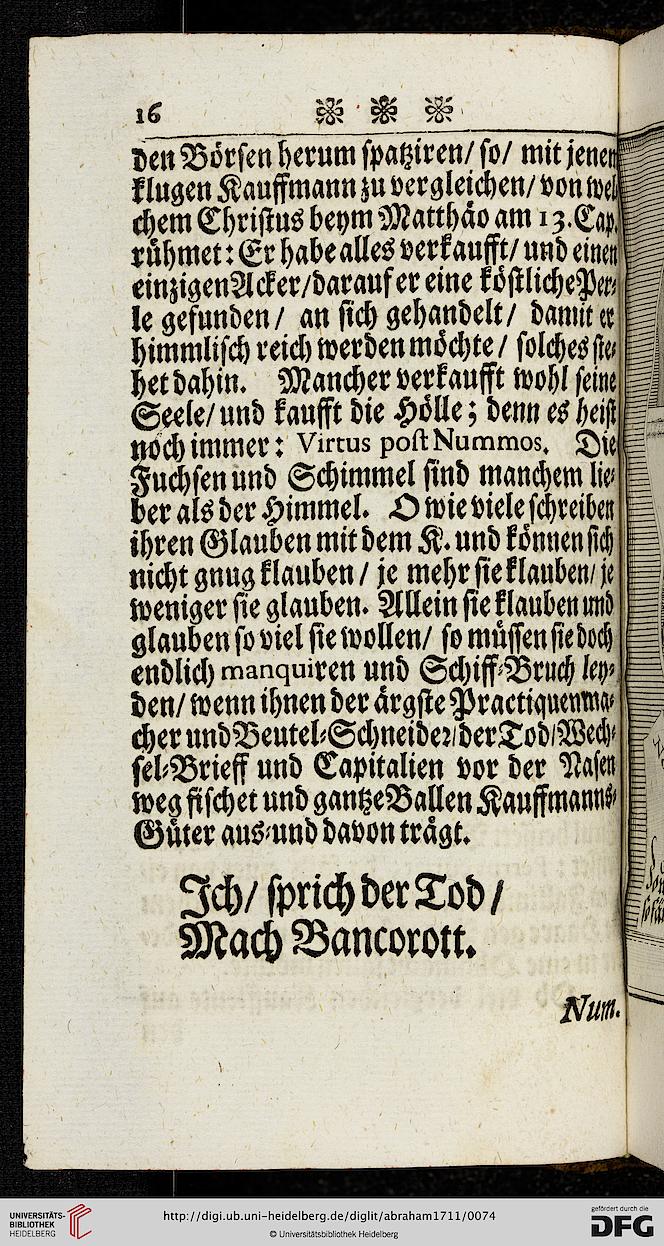 16
den Börsen herum spatziren/ so/ mit jenen
klugen Kauffmann zu vergleichen/ von wel-
chem Christus beym Matthäo am 13. Cap.
rühmet: Er habe alles verkaufft/ und einen
einzigen Acker/ darauf er eine köstliche Per-
le gefunden/ an sich gehandelt/ damit er
himmlisch reich werden möchte/ solches ste-
het dahin. Mancher verkaufft wohl seine
Seele/ und kaufft die Hölle; denn es heist
noch immer: Virtus post Nummos. Die
Fuchsen und Schimmel sind manchem lie-
ber als der Himmel. O wie viele schreiben
ihren Glauben mit dem K. und können sich
nicht gnug klauben/ je mehr sie klauben/ je
weniger sie glauben. Allein sie klauben und
glauben so viel sie wollen/ so müssen sie doch
endlich manquiren und Schiff-Bruch ley-
den/ wenn ihnen der ärgste Practiquenma-
cher und Beutel-Schneider/ der Tod/ Wech-
sel-Brieff und Capitalien vor der Nasen
weg fischet und gantze Ballen Kauffmanns-
Güter aus- und davon trägt.
Ich/ sprich der Tod/
Mach Bancorott.
Num.
UNIVERSITÄTS-
BIBLIOTHEK
HEIDELBERG
http://digi.ub.uni-heidelberg.de/diglit/abraham1711/0074
© Universitätsbibliothek Heidelberg
gefördert durch die
DFG